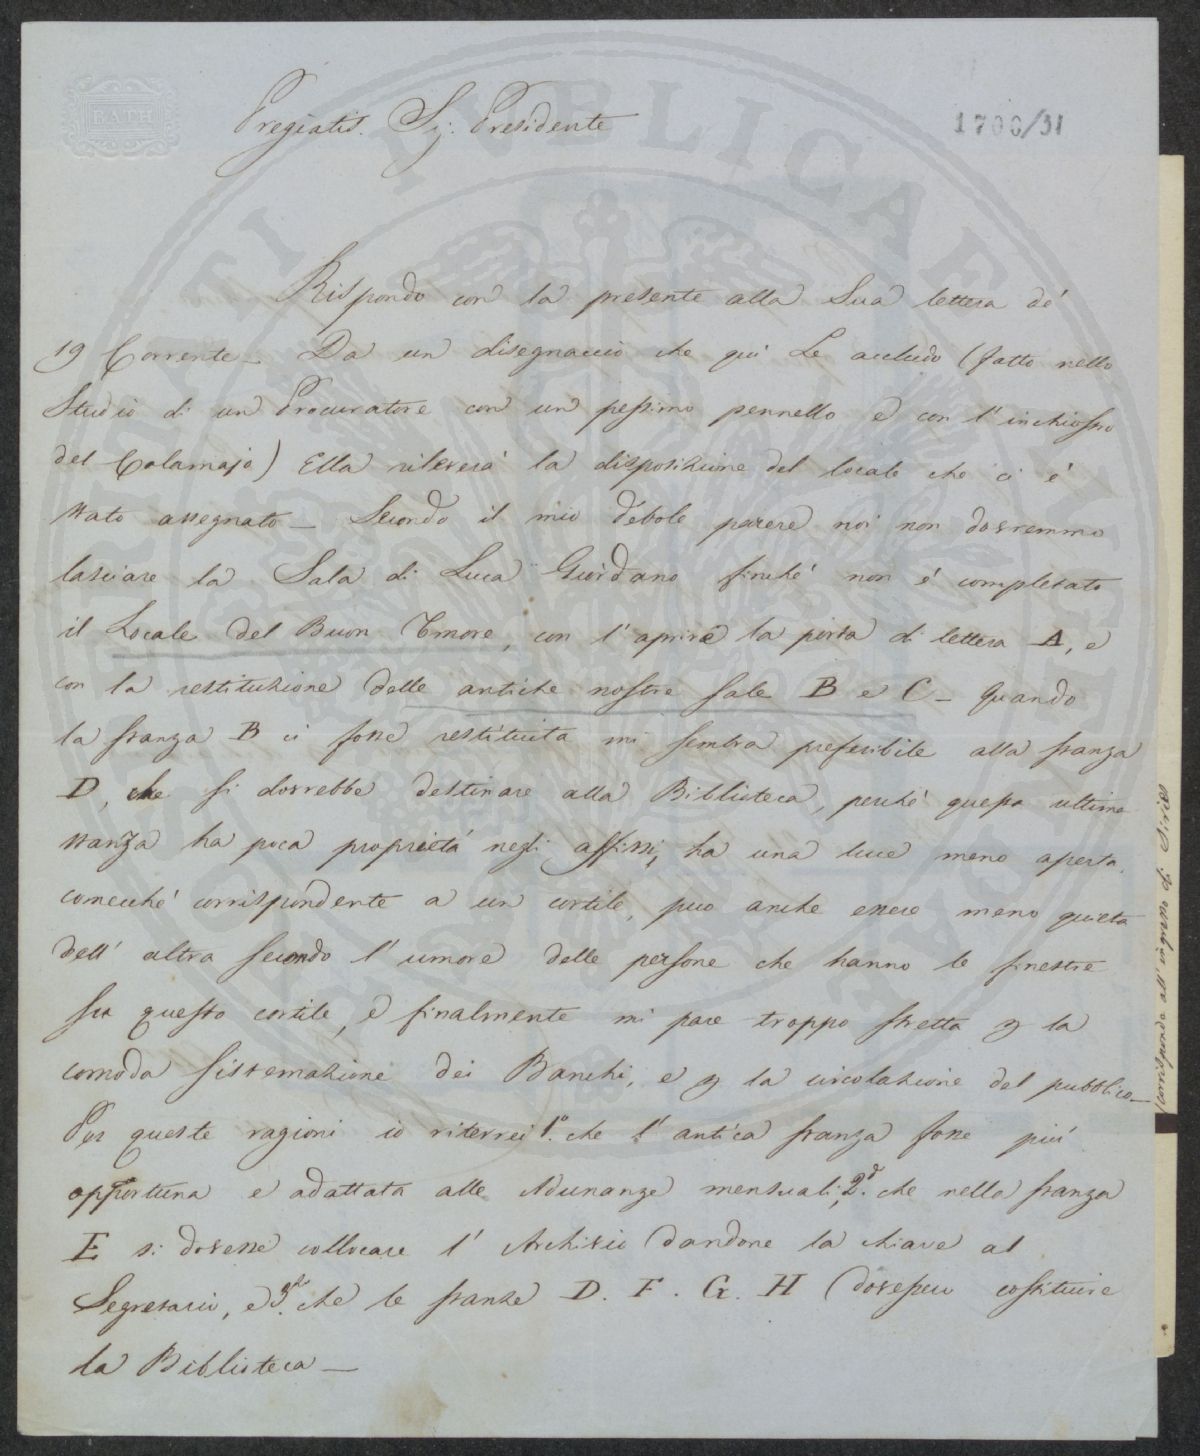 BATH
Pregiatis. Sig: Presidente
1700/31
Rispondo con la presente alla Sua lettera de'
19 Corrente_ Da un disegnaccio che quì Le accludo (fatto nello
Studio di un Procuratore con un pessimo pennello e con l'inchiostro
del Calamajo) Ella rileverà la disposizione del locale che ci è
stato assegnato_ Secondo il mio debole parere noi non dovremmo
lasciare la Sala di Luca Giordano finchè non è completato
il Locale del Buon Umore, con l'aprire la porta di lettera A, e
con la restituzione delle antiche nostre sale B e C_ Quando
la stanza B ci fosse restituita mi sembra preferibile alla stanza
D, che si dovrebbe destinare alla Biblioteca, perchè questa ultima
stanza ha poca proprietà negli affissi, ha una luce meno aperta,
comecchè corrispondente a un cortile, può anche essere meno quieta
dell'altra secondo l'umore delle persone che hanno le finestre
su questo cortile, e finalmente mi pare troppo stretta p la
comoda sistemazione dei Banchi, e p la circolazione del pubblico_
Per queste ragioni io riterrei 1º. che l'antica stanza fosse più
opportuna e adattata alle Adunanze mensuali; 2º. che nella stanza
E si dovesse collocare l'Archivio dandone la chiave al
Segretario, e 3º. che le stanze D. F. G. H dovessero costituire
la Biblioteca_
corrisponde all'ingresso di Siries